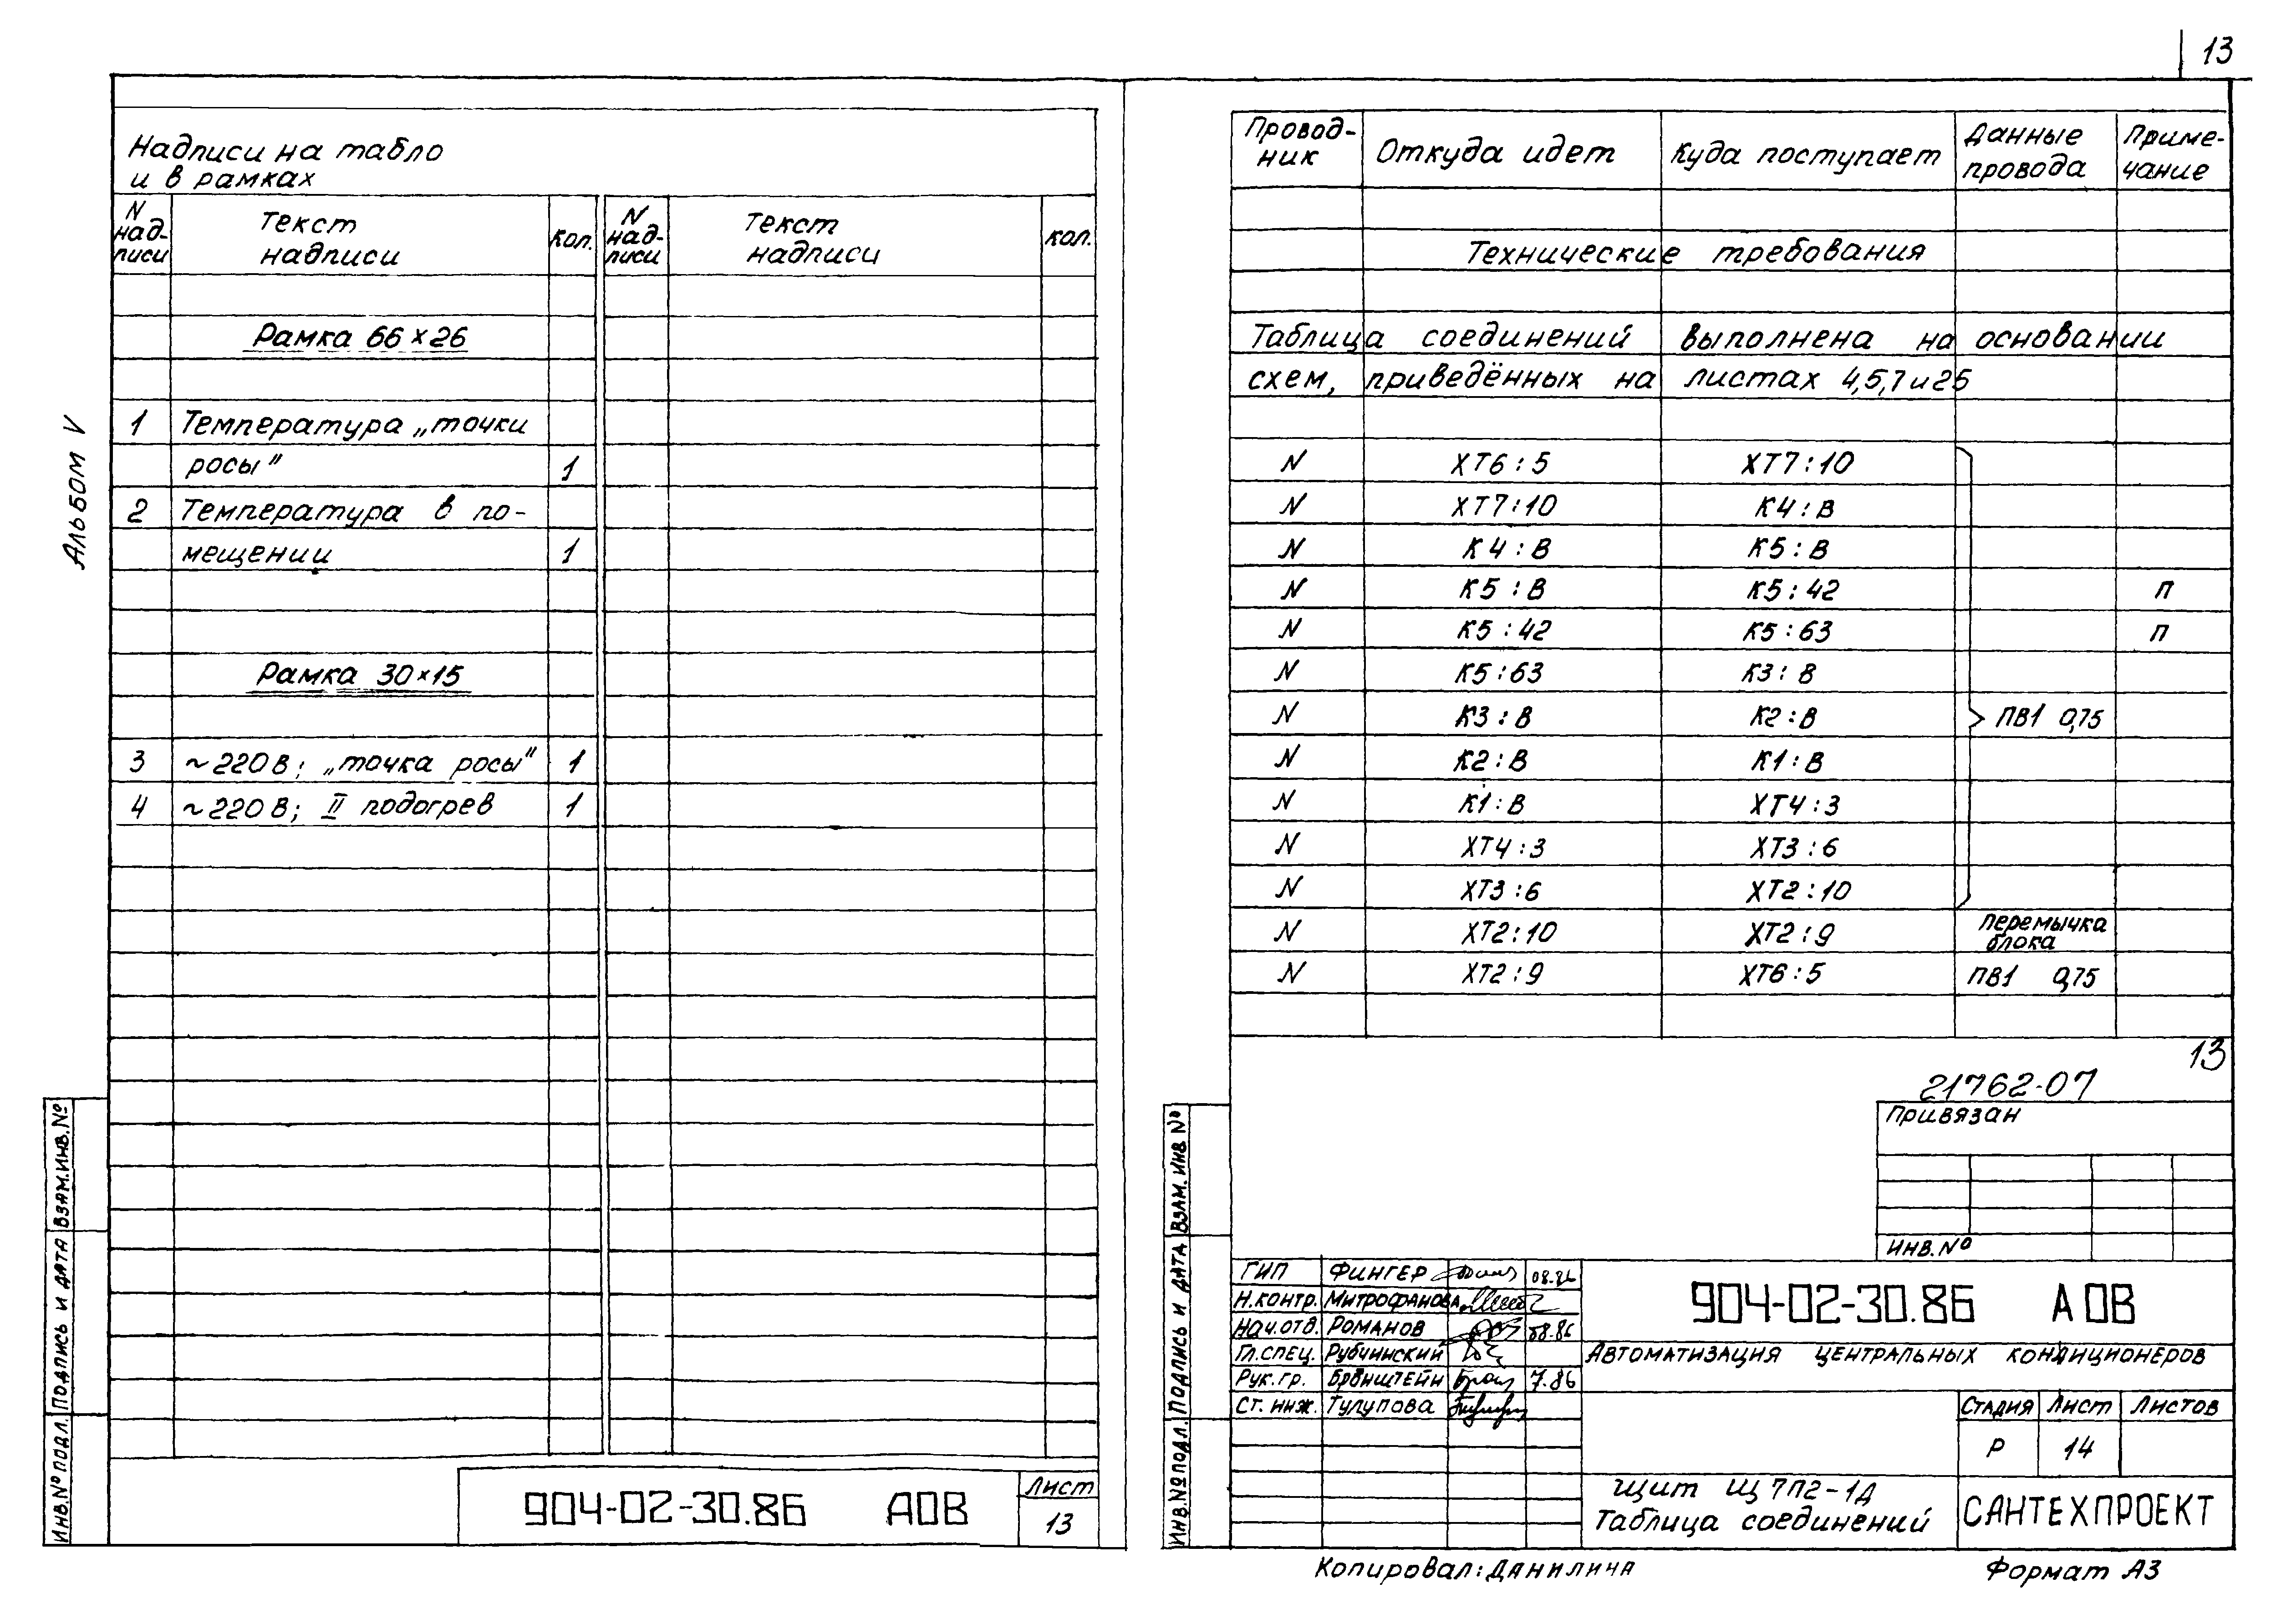 13
Альбом V
Надписи на табло
и в рамках
N надписи Текст надписи Кол. N надписи Текст надписи Кол.
Рамка 66×26
1 Температура „точки
росы" 1
2 Температура в по-
мещении 1
Рамка 30×15
3 ~220В; „точка росы" 1
4 ~220В; II подогрев 1
904-02-30.86 АОВ
Лист
13
Инв.№ подл. Подпись и дата Взам.инв.№
Провод-ник Откуда идет Куда поступает Данные провода Приме-чание
Технические требования
Таблица соединений выполнена на основании
схем, приведённых на листах 4,5,7 и 25
N ХТ6:5 ХТ7:10
N ХТ7:10 К4:В
N К4:В К5:В
N К5:В К5:42 П
N К5:42 К5:63 П
N К5:63 К3:В
N К3:В К2:В ПВ1 0,75
N К2:В К1:В
N К1:В ХТ4:3
N ХТ4:3 ХТ3:6
N ХТ3:6 ХТ2:10
N ХТ2:10 ХТ2:9 перемычка блока
N ХТ2:9 ХТ6:5 ПВ1 0,75
13
21762-07
Привязан
Инв.№
Инв.№ подл. Подпись и дата Взам.инв №
ГИП Фингер 08.86
Н.контр. Митрофанова
Нач.отд. Романов 08.86
Гл.спец. Рубчинский
Рук.гр. Бронштейн 7.86
Ст. инж. Тулупова
904-02-30.86 АОВ
Автоматизация центральных кондиционеров
Стадия Лист Листов
Р 14
Щит Щ7П2-1Д
Таблица соединений
САНТЕХПРОЕКТ
Копировал: Данилина
Формат А3